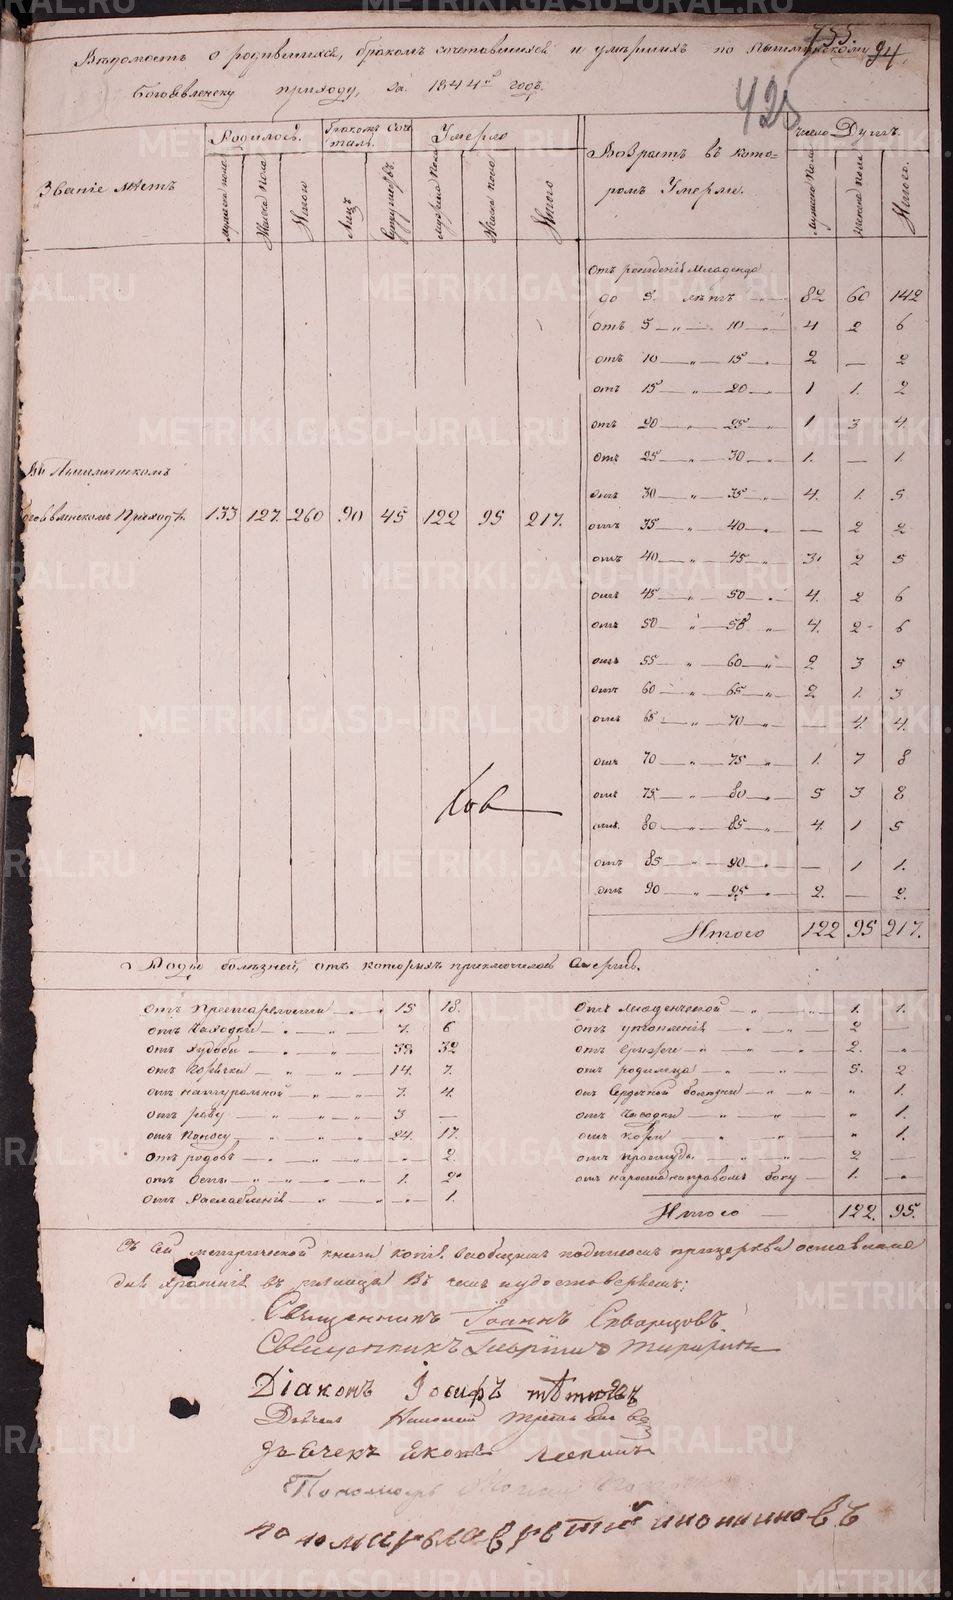 755.
94.
425
Вѣдомость о родившихся, бракомъ сочетавшихся и умершихъ по Пышминскому
Богоявленску приходу, за 1844й годъ.
Званіе мѣстъ
Родилось.
Бракомъ Соч-
талось.
Умерло
Возрастъ въ кото-
ромъ Умерли.
число Душъ.
мужеска пола
Женска пола
Итого
Лицъ
Супружествъ.
мужеска пола
Женска пола
Итого
мужеска пола
женска пола
Итого.
Отъ рожденія Младенца
до 5. лѣтъ 82 60 142
отъ 5 — „ — 10 4 2 6
отъ 10 — „ — 15 2 — 2
отъ 15 — „ — 20 1 1. 2
отъ 20 — „ — 25 1 3 4.
отъ 25 „ 30 1. — 1.
отъ 30 „ 35 4. 1. 5
отъ 35 „ 40 — 2 2
отъ 40 „ 45 3. 2 5
отъ 45 „ 50 4. 2 6
отъ 50 „ 55 4. 2 6
отъ 55 „ 60 2 3 5
отъ 60 „ 65 2 1. 3
отъ 65 „ 70 — 4. 4.
отъ 70 „ 75 1. 7 8
отъ 75 „ 80 5 3 8
отъ 80 „ 85 4. 1 5
отъ 85 „ 90 — 1 1.
отъ 90 „ 95 2. — 2.
Итого 122 95 217.
Въ Пышминскомъ
Богоявленскомъ Приходѣ. 133 127. 260 90 45 122 95 217.
Роды болѣзней, отъ которыхъ приключилась Смерть.
отъ Престарелости 15 18.
отъ Чаходки 7. 6
отъ худобы 38 32
отъ Горячки 14. 7.
отъ натуральной 7. 4.
отъ рѣзу 3 —
отъ Поносу 24. 17.
отъ родовъ „ 2.
отъ Оспы 1. 2
отъ Разслабленія „ 1.
отъ младенческой 1. 1.
отъ утопленія 2
отъ грыжи 2. „
отъ родимца 5. 2
отъ Сердечной болѣзни „ 1.
отъ Чесодки „ 1.
отъ Кори „ 1.
отъ простуды 2 —
отъ нароста на правомъ боку 1.
Итого 122. 95.
Съ Сей метрической книги копія
для храненія въ ризницѣ Въ чемъ и удостовѣряемъ:
Священникъ Іоаннъ Скварцовъ
Священникъ
Діаконъ Іосифъ
Дьячекъ
дьячекъ Яковъ
Пономарь
пономарь лаврентий инокиновъ
METRIKI.GASO-URAL.RU